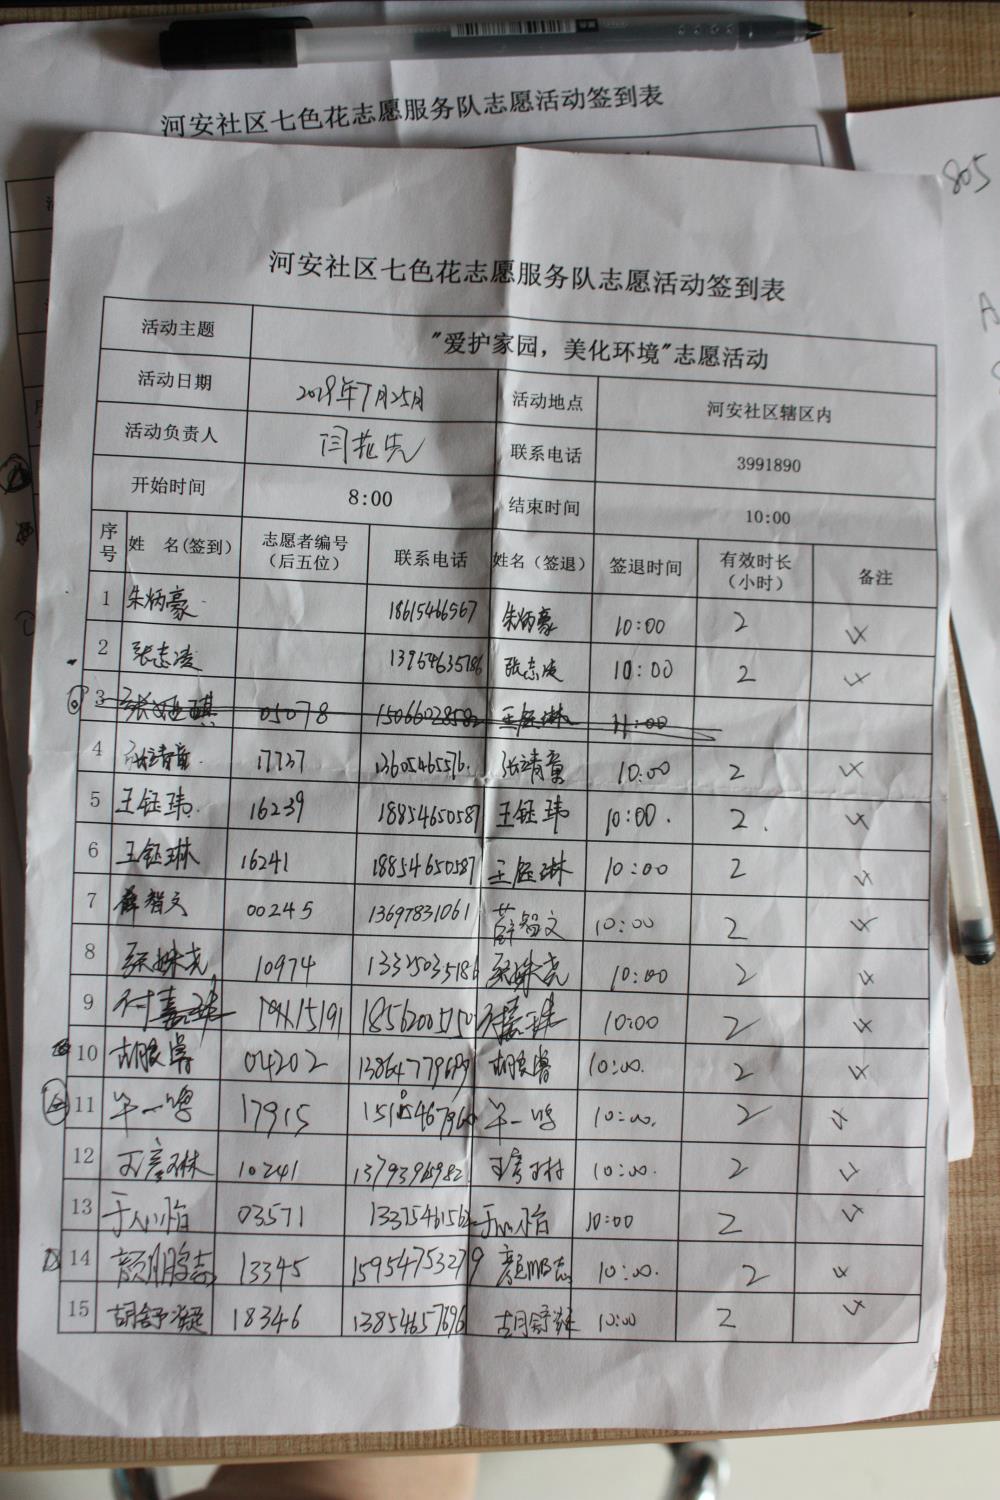 河安社区七色花志愿服务队志愿活动签到表
805
河安社区七色花志愿服务队志愿活动签到表
活动主题 "爱护家园，美化环境"志愿活动
活动日期 2019年7月25日 活动地点 河安社区辖区内
活动负责人 闫花先 联系电话 3991890
开始时间 8:00 结束时间 10:00
序号 姓 名(签到) 志愿者编号（后五位） 联系电话 姓名（签退） 签退时间 有效时长（小时） 备注
1 朱炳豪 18615466567 朱炳豪 10:00 2
2 张志凌 13964635786 张志凌 10:00 2
3 05078 15066028582 王钰琳 11:00
4 张靖童 17737 13605465576. 张靖童 10:00 2
5 王钰玮. 16239 18854650587 王钰玮 10:00. 2.
6 王钰琳 16241 18854650587 王钰琳 10:00 2
7 薛智文 00245 13697831061 薛智文 10:00 2
8 10974 13325035186 10:00 2
9 付嘉 10:00 2
10 04202 10:00. 2
11 牟一鸣 17915 牟一鸣 10:00. 2
12 王彦琳 10241 10:00. 2
13 于心怡 03571 于心怡 10:00 2
14 颜鹏志 13345 15954753279 10:00. 2
15 胡舒凝 18346 13854657696 胡舒凝 10:00 2